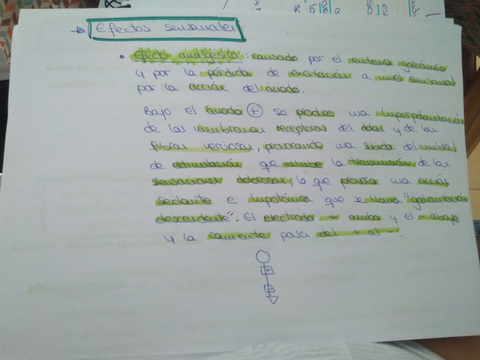 → Efectos sensoriales
• efecto analgésico: causado por el cambio galvánico
y por la pérdida de excitación a nivel sensorial
por la acción del ánodo.
Bajo el ánodo ⊕ se produce una hiperpolarización
de las membranas receptoras del dolor y de las
fibras nerviosas, provocando una subida del umbral
de estimulación que reduce la transmisión de las
sensaciones dolorosas, lo que provoca una acción
sedante e hipotónica que se llama "galvanización
descendente". El electrodo + arriba y el - abajo
y la corriente pasa del + al -.